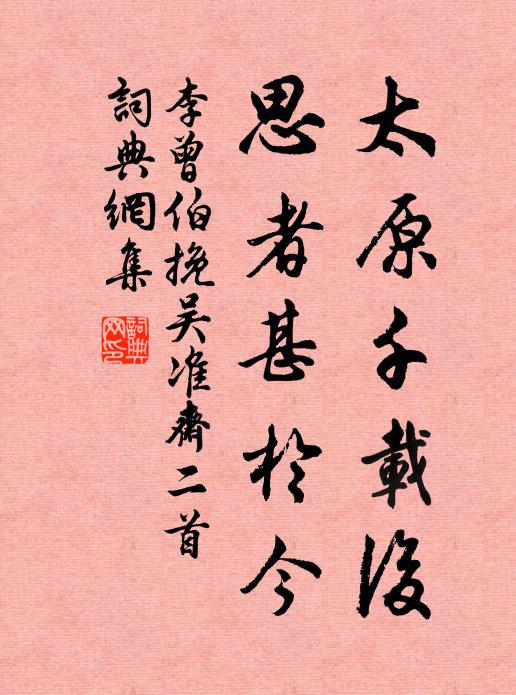 太原千載後
思者甚於今
李曾伯挽吴准齋二首
詞典網集
詞典網印